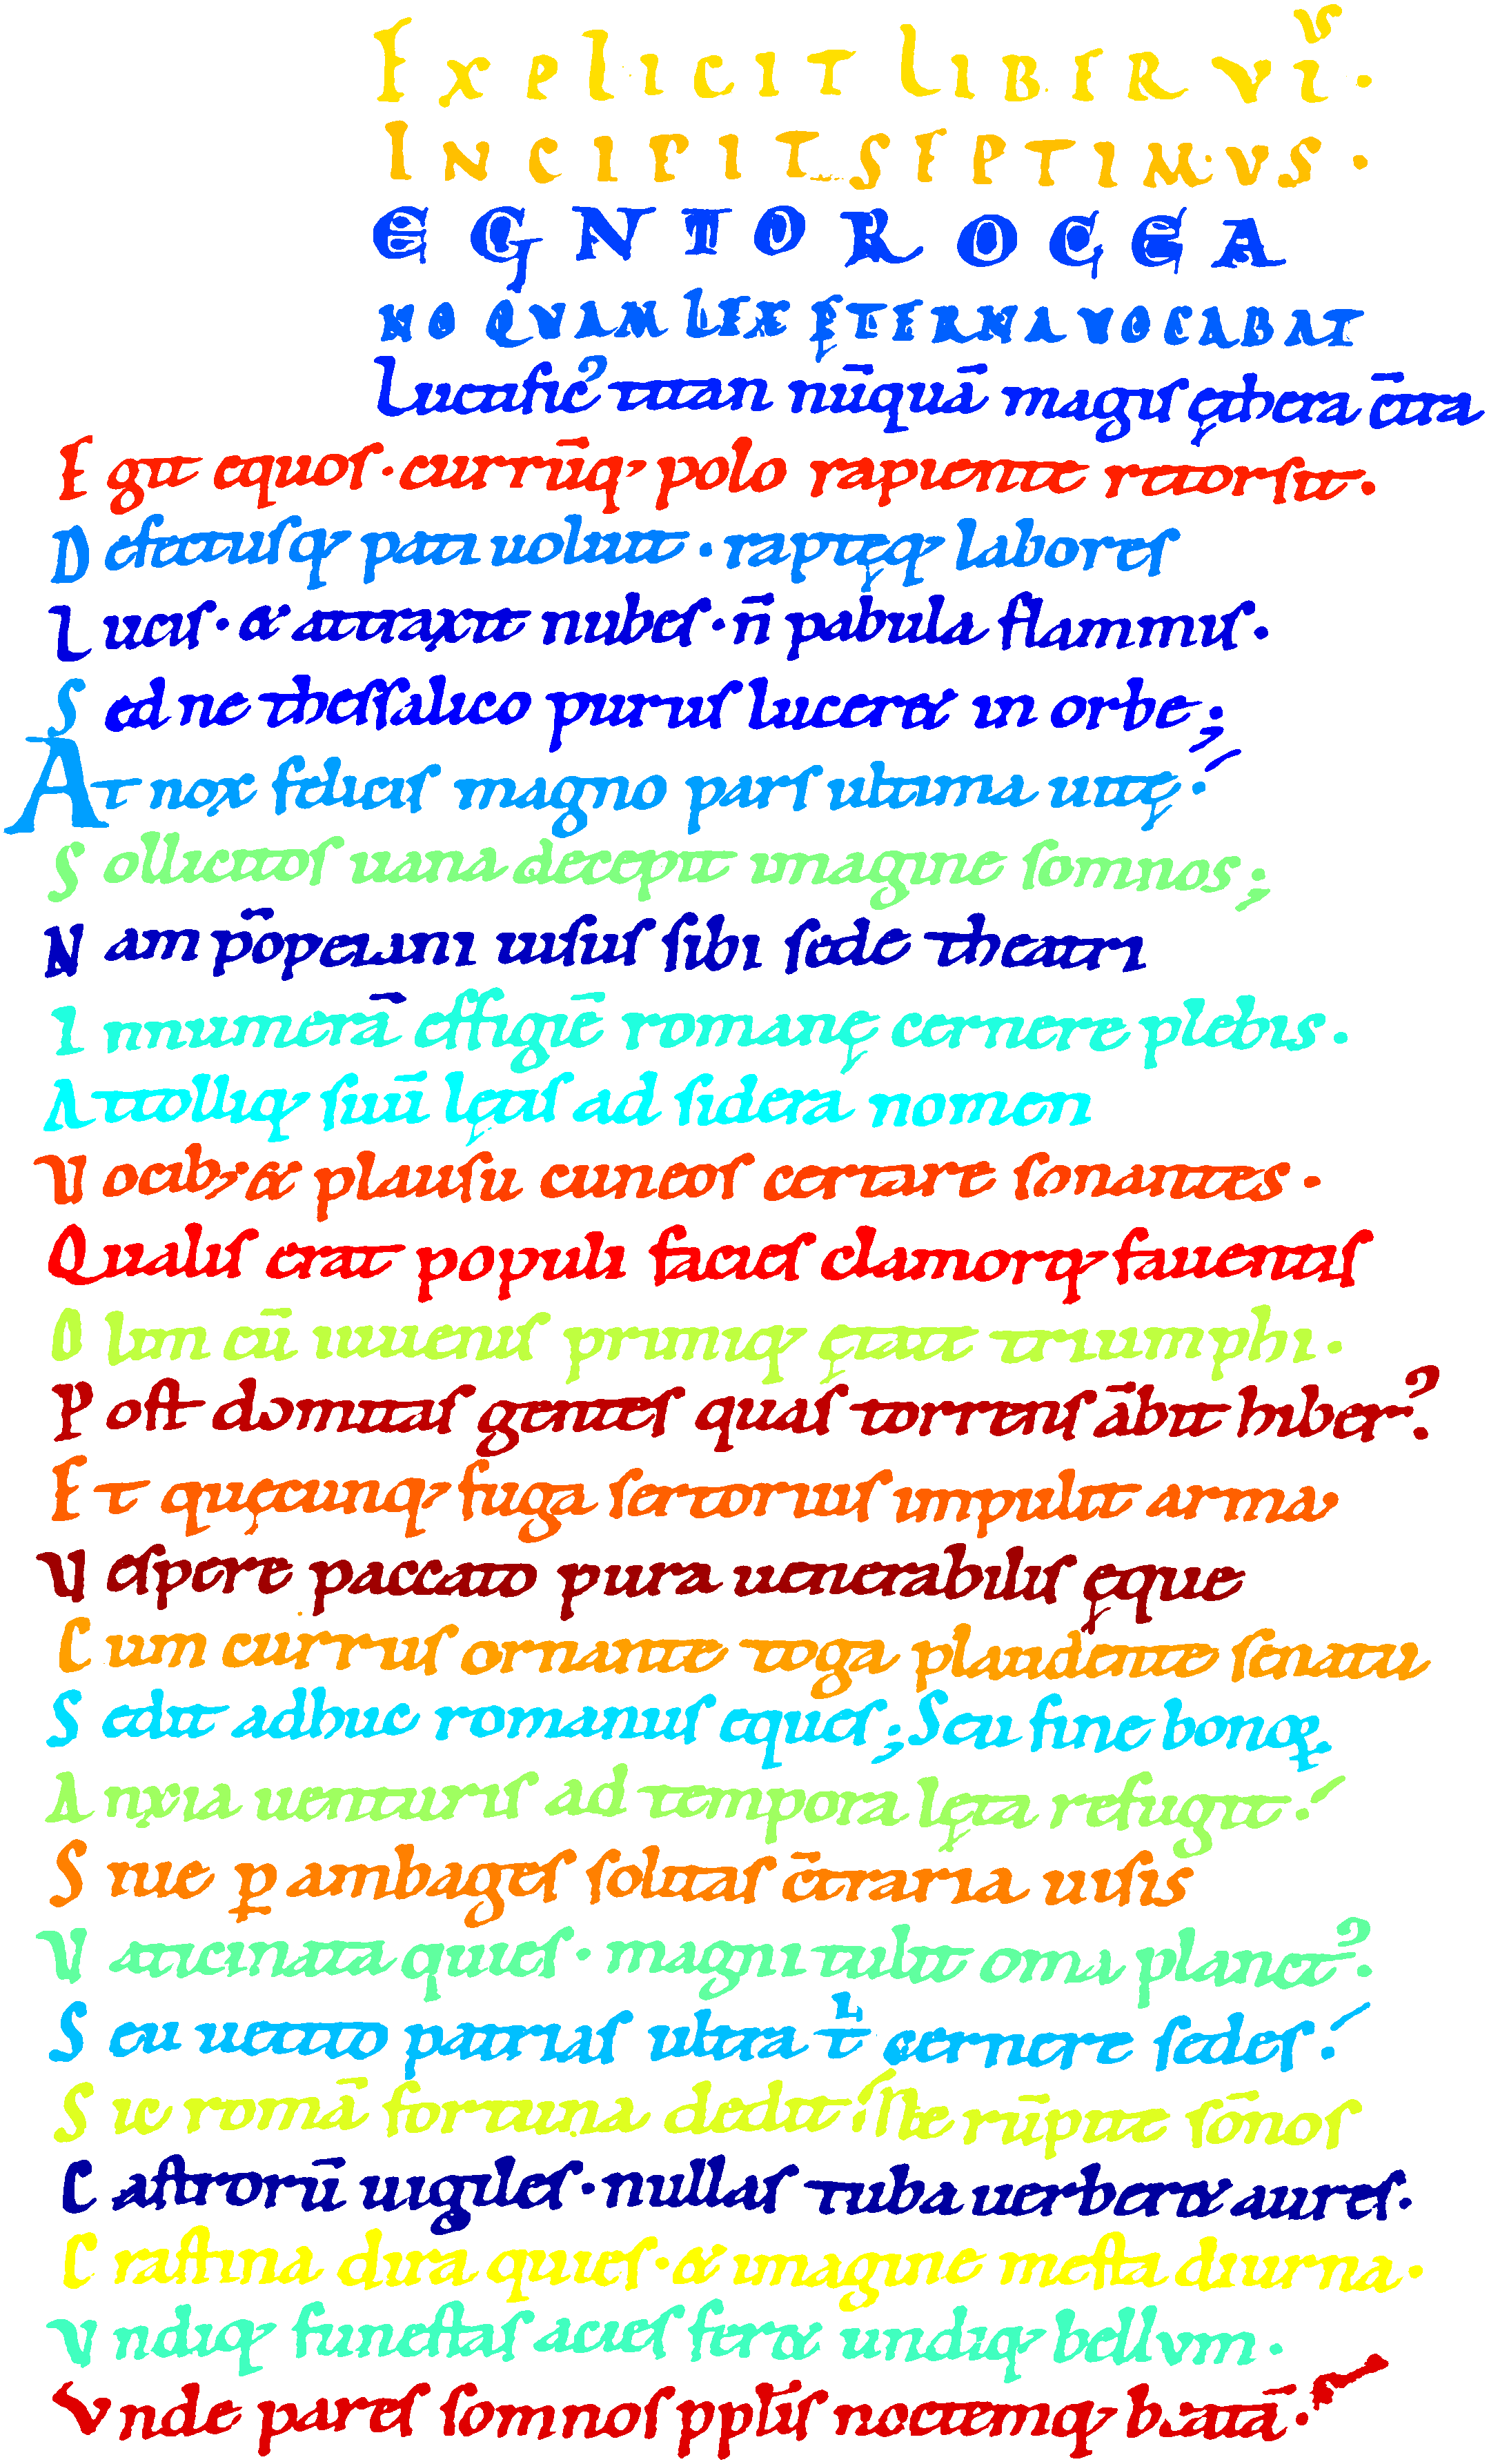 EXPLICIT LIBER VI^us.
INCIPIT SEPTIMVS.
EGNIOR OCEA
NO QVAM LEX ĘTERNA VOCABAT
Luctific᾽ titan nūquā magis ęthera c̄tra
Egit equos· currūq; polo rapiente retorsit.
Defectusq; pati uoluit· raptęq; labores
Lucis· & attraxit nubes· n̄ pabula flammis.
Sed ne thessalico purus luceret in orbe;
At nox felicis magno pars ultima uitę:
Sollicitos uana decepit imagine somnos;
Nam pōpeiani uisus sibi sede theatri
Innumerā effigiē romanę cernere plebis.
Attolliq; suū lętis ad sidera nomen
Vocib; & plausu cuneos certare sonantes.
Qualis erat populi facies clamorq; fauentis
Olim cū iuuenis primiq; ętate triumphi.
Post domitas gentes quas torrens ābit hiber᾽.
Et quęcunq; fuga sertorius impulit arma
Vespere paccato pura uenerabilis ęque
Cum currus ornante toga plaudente senatu
Sedit adhuc romanus eques; Seu fine bonoꝝ
Anxia uenturis ad tempora lęta refugit:
Siue ꝑ ambages solitas c̄traria uisis
Vaticinata quies· magni tulit omia planct᾽.
Seu uetito patrias ultra t^i cernere sedes:
Sic romā fortuna dedit; Ne rūpite sōnos
Castrorū uigiles· nullas tuba uerberet aures.
Crastina dira quies· & imagine mesta diurna.
Vndiq; funestas acies feret undiq; bellvm.
Vnde pares somnos ppl̄is noctemq; beatā.